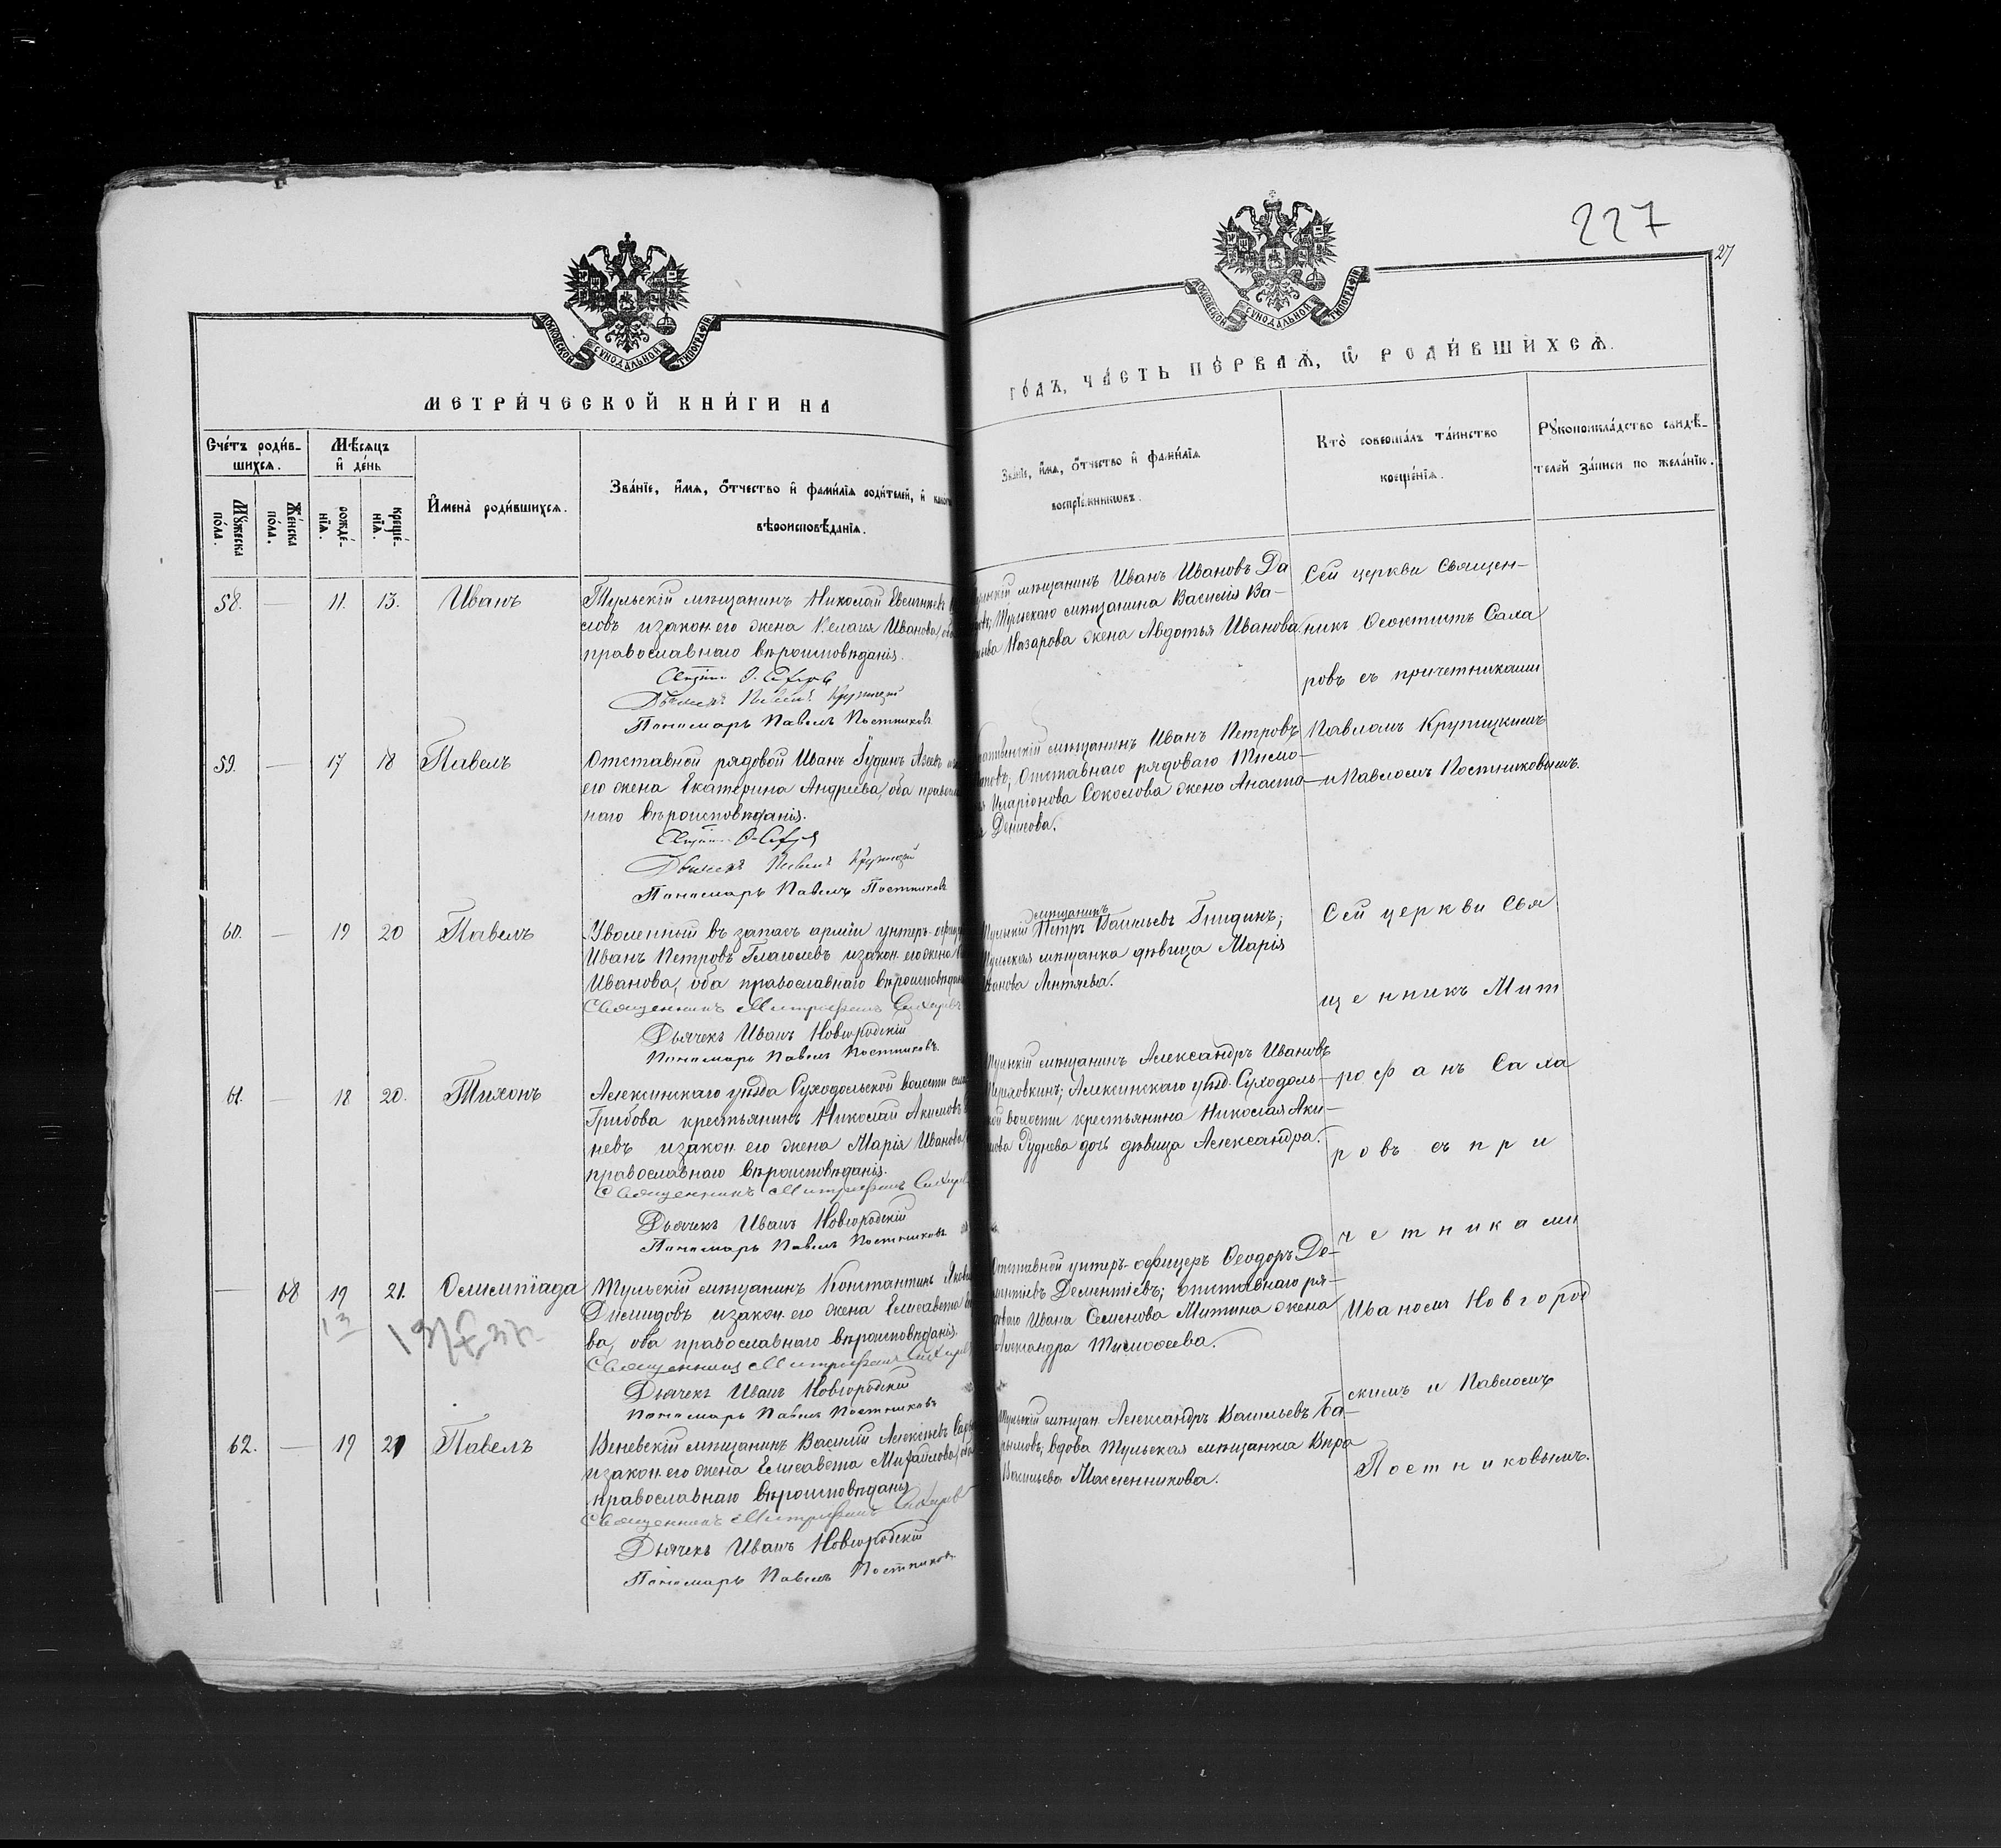 227
27
МОСКОВСКОЙ СѴНОДАЛЬНОЙ ТИПОГРАФІИ
МОСКОВСКОЙ СѴНОДАЛЬНОЙ ТИПОГРАФІИ
МЕТРИ́ЧЕСКОЙ КНИ́ГИ НА
ГО́ДЪ, ЧА́СТЬ ПЕ́РВАѦ, Ѡ҆ РОДИ́ВШИХСѦ.
Сче́тъ роди́в-
шихсѧ.
Мѣ́сѧцъ
и҆ де́нь
Мꙋ́жеска
по́ла.
Же́нска
по́ла.
рожде́-
нїѧ.
креще́-
нїѧ.
И҆мена̀ роди́вшихсѧ.
Зва́нїе, и҆́мѧ, ѻ҆́тчество и҆ фами́лїѧ роди́телей, и҆
вѣроисповѣ́данїѧ.
Зва́нїе, и҆́мѧ, ѻ҆́тчество и҆ фами́лїѧ
воспрїе́мникѡвъ.
Кто̀ соверша́лъ та́инство
креще́нїѧ.
Рꙋкоприкла́дство свидѣ́-
телей за́писи по жела́нїю.
58. — 11. 13. Иванъ
Тульскій мѣщанинъ Николай
словъ и закон. его жена Пелагія Иванова,
православнаго вѣроисповѣданія.
Дьячекъ Павелъ Крутицкій
Пономарь Павелъ Постниковъ
мѣщанинъ Иванъ Ивановъ Да
Тульскаго мѣщанина Василія Ва-
Назарова жена Авдотья Иванова.
Сей церкви Священ-
никъ Ѳеоктистъ Саха
ровъ съ причетниками
Павломъ Крутицкимъ
и Павломъ Постниковымъ.
59. — 17 18 Павелъ
Отставной рядовой Иванъ
его жена Екатерина Андреева, оба
наго вѣроисповѣданія.
Дьячекъ Павелъ Крутицкій
Пономарь Павелъ Постниковъ
мѣщанинъ Иванъ Петровъ
Отставнаго рядоваго Тимо-
Иларіонова Соколова жена Анаста-
60. — 19 20 Павелъ
Уволенный въ запасъ арміи унтеръ-
Иванъ Петровъ Глаголевъ и закон. его жена
Иванова, оба православнаго
Священникъ Митрофанъ Сахаровъ
Дьячекъ Иванъ Новгородскій
Пономарь Павелъ Постниковъ.
мѣщанинъ
Тульскій Петръ Васильевъ
Тульская мѣщанка дѣвица Марія
Сей церкви Свя
щенникъ Мит
рофанъ Саха
ровъ съ при
четниками
Иваномъ Новгород
скимъ и Павломъ
Постниковымъ.
61. — 18 20. Тихонъ
Алексинскаго уѣзда Суходольской волости
Грибова крестьянинъ Николай Акимовъ
невъ и закон. его жена Марія Иванова,
православнаго вѣроисповѣданія.
Священникъ Митрофанъ
Дьячекъ Иванъ Новгородскій
Пономарь Павелъ Постниковъ
Тульскій мѣщанинъ Александръ Ивановъ
Алексинскаго уѣзд. Суходоль-
ской волости крестьянина Николая Аки-
мова Руднева дочь дѣвица Александра.
— 68 19 21. Олимпіада
13
Тульскій мѣщанинъ Константинъ
Демидовъ и закон. его жена Елисавета
ва, оба православнаго вѣроисповѣданія.
Священникъ Митрофанъ
Дьячекъ Иванъ Новгородскій
Пономарь Павелъ Постниковъ
Отставной унтеръ-офицеръ Ѳеодоръ Де-
ментіевъ Дементіевъ; отставнаго ря-
доваго Ивана Семенова Митина жена
Александра Тимоѳеева.
62. — 19 21 Павелъ
Веневскій мѣщанинъ Василій Алексѣевъ
и закон. его жена Елисавета Михайлова,
православнаго вѣроисповѣданія
Священникъ Митрофанъ Сахаровъ
Дьячекъ Иванъ Новгородскій
Пономарь Павелъ Постниковъ
Тульскій мѣщан. Александръ Васильевъ Ба-
вдова Тульская мѣщанка Вѣра
Васильева Масленникова.